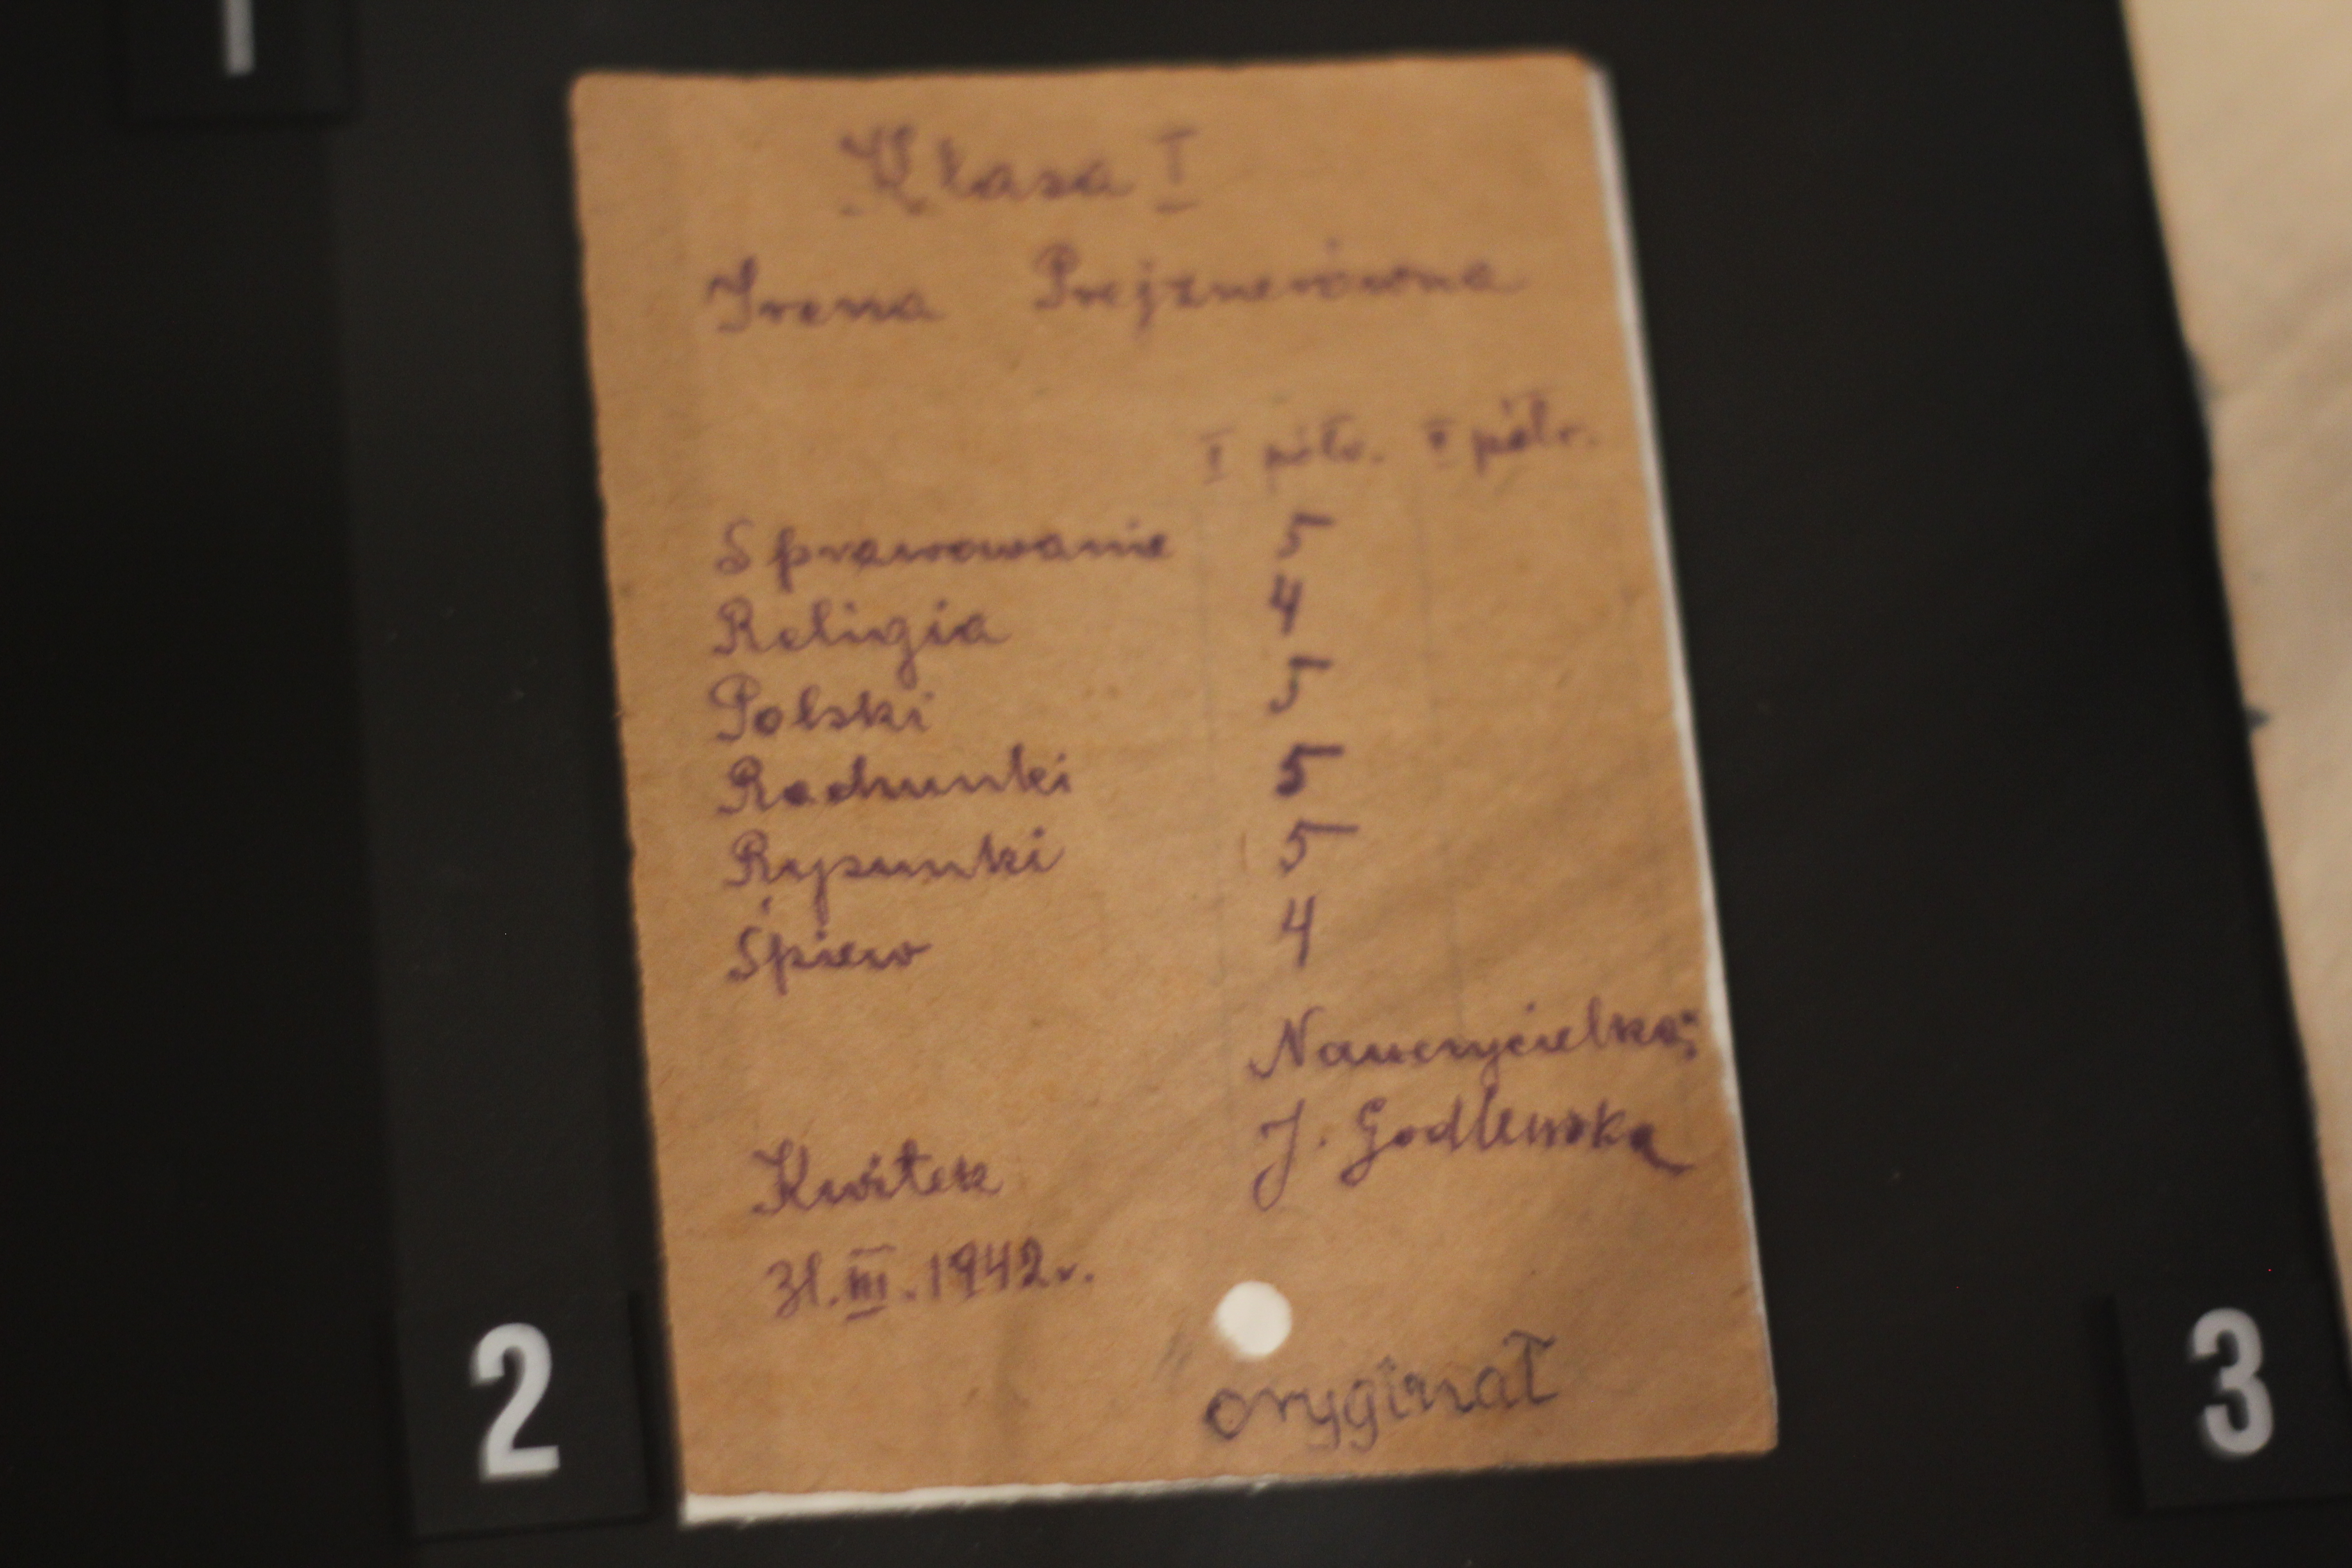 1
Klasa I
Irena Prejznerówna
I półr. II półr.
Sprawowanie 5
Religia 4
Polski 5
Rachunki 5
Rysunki 5
Śpiew 4
Nauczycielka:
J. Godlewska
Kwitek
31.III.1942r.
oryginał
2
3